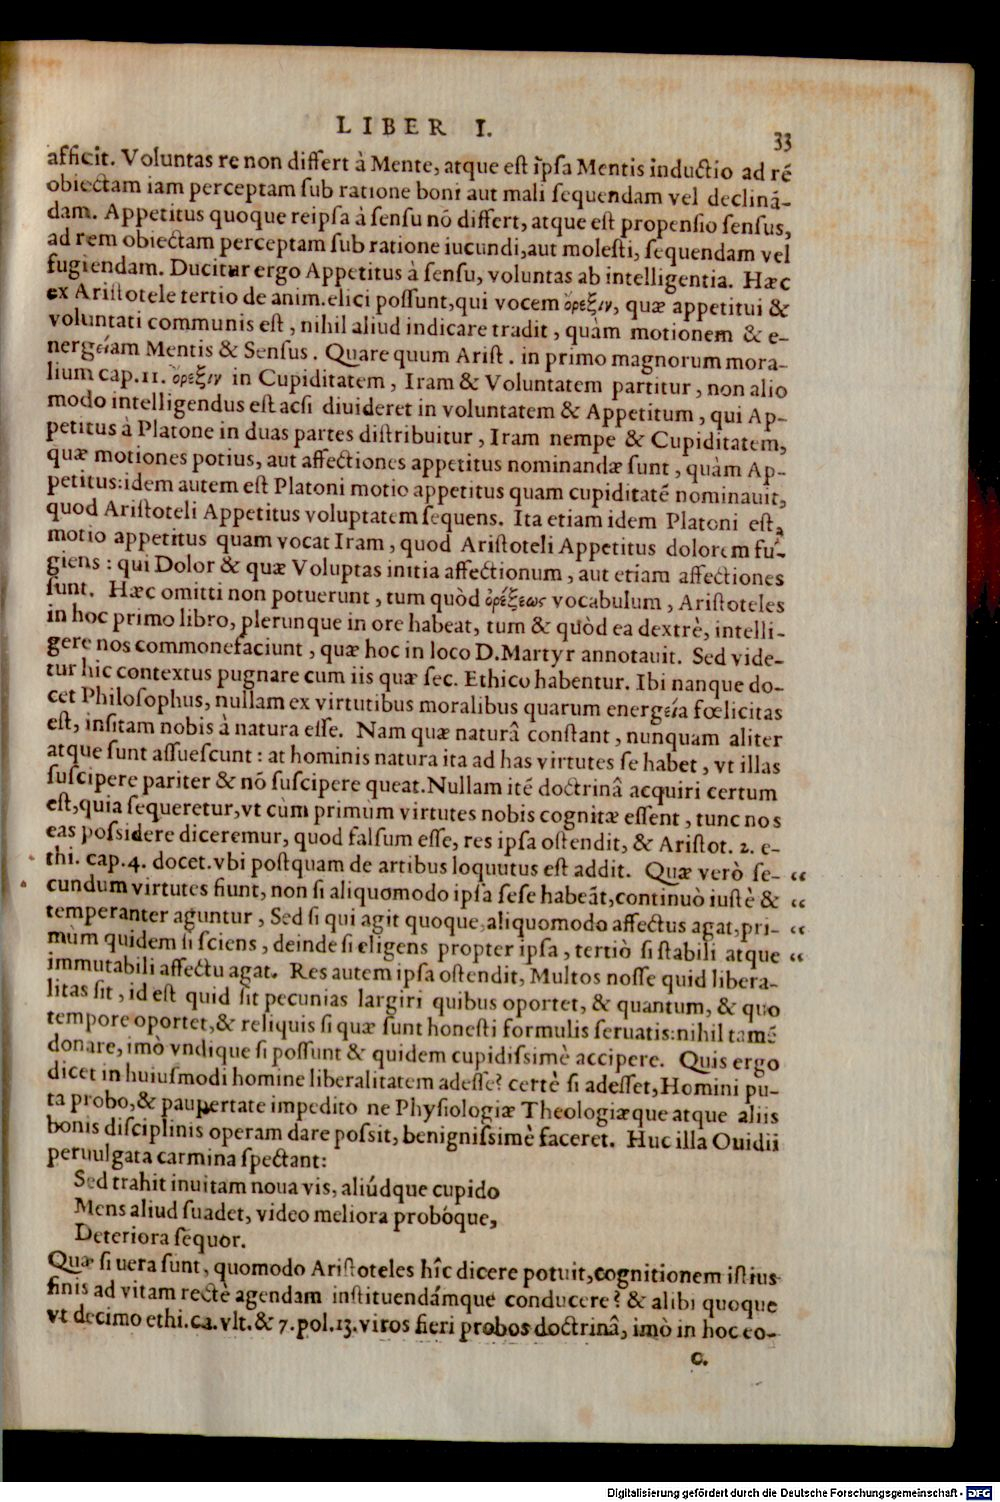 LIBER I.
33
afficit. Voluntas re non differt à Mente, atque est ipsa Mentis inductio ad rẽ
obiectam iam perceptam sub ratione boni aut mali sequendam vel declinã-
dam. Appetitus quoque reipsa à sensu nõ differt, atque est propensio sensus,
ad rem obiectam perceptam sub ratione iucundi, aut molesti, sequendam vel
fugiendam. Ducitur ergo Appetitus à sensu, voluntas ab intelligentia. Hæc
ex Aristotele tertio de anim. elici possunt, qui vocem ὄρεξιν, quæ appetitui &
voluntati communis est, nihil aliud indicare tradit, quàm motionem & e-
nergείam Mentis & Sensus. Quare quum Arist. in primo magnorum mora-
lium cap. 11. ὄρεξιν in Cupiditatem, Iram & Voluntatem partitur, non alio
modo intelligendus est acsi diuideret in voluntatem & Appetitum, qui Ap-
petitus à Platone in duas partes distribuitur, Iram nempe & Cupiditatem,
quæ motiones potius, aut affectiones appetitus nominandæ sunt, quàm Ap-
petitus: idem autem est Platoni motio appetitus quam cupiditatẽ nominauit,
quod Aristoteli Appetitus voluptatem sequens. Ita etiam idem Platoni est,
motio appetitus quam vocat Iram, quod Aristoteli Appetitus dolorem fu-
giens: qui Dolor & quæ Voluptas initia affectionum, aut etiam affectiones
sunt. Hæc omitti non potuerunt, tum quòd ὀρέξεως vocabulum, Aristoteles
in hoc primo libro, plerunque in ore habeat, tum & quòd ea dextrè, intelli-
gere nos commonefaciunt, quæ hoc in loco D. Martyr annotauit. Sed vide-
tur hic contextus pugnare cum iis quæ sec. Ethico habentur. Ibi nanque do-
cet Philosophus, nullam ex virtutibus moralibus quarum energεία fœlicitas
est, insitam nobis à natura esse. Nam quæ naturâ constant, nunquam aliter
atque sunt assuescunt: at hominis natura ita ad has virtutes se habet, vt illas
suscipere pariter & nõ suscipere queat. Nullam itẽ doctrinâ acquiri certum
est, quia sequeretur, vt cùm primum virtutes nobis cognitæ essent, tunc nos
eas possidere diceremur, quod falsum esse, res ipsa ostendit, & Aristot. 2. e-
thi. cap. 4. docet. vbi postquam de artibus loquutus est addit. Quæ verò se- “
cundum virtutes fiunt, non si aliquomodo ipsa sese habeãt, continuò iustè & “
temperanter aguntur, Sed si qui agit quoque, aliquomodo affectus agat, pri- “
mùm quidem si sciens, deinde si eligens propter ipsa, tertiò si stabili atque “
immutabili affectu agat. Res autem ipsa ostendit, Multos nosse quid libera-
litas sit, id est quid sit pecunias largiri quibus oportet, & quantum, & quo
tempore oportet, & reliquis si quæ sunt honesti formulis seruatis: nihil tamẽ
donare, imò vndique si possunt & quidem cupidissimè accipere. Quis ergo
dicet in huiusmodi homine liberalitatem adesse? certè si adesset, Homini pu-
ta probo, & paupertate impedito ne Physiologiæ Theologiæque atque aliis
bonis disciplinis operam dare possit, benignissimè faceret. Huc illa Ouidii
peruulgata carmina spectant:
Sed trahit inuitam noua vis, aliúdque cupido
Mens aliud suadet, video meliora probóque,
Deteriora sequor.
Quæ si uera sunt, quomodo Aristoteles hîc dicere potuit, cognitionem istius
finis ad vitam rectè agendam instituendámque conducere? & alibi quoque
vt decimo ethi. ca. vlt. & 7. pol. 13. viros fieri probos doctrinâ, imò in hoc eo-
c.
Digitalisierung gefördert durch die Deutsche Forschungsgemeinschaft - DFG